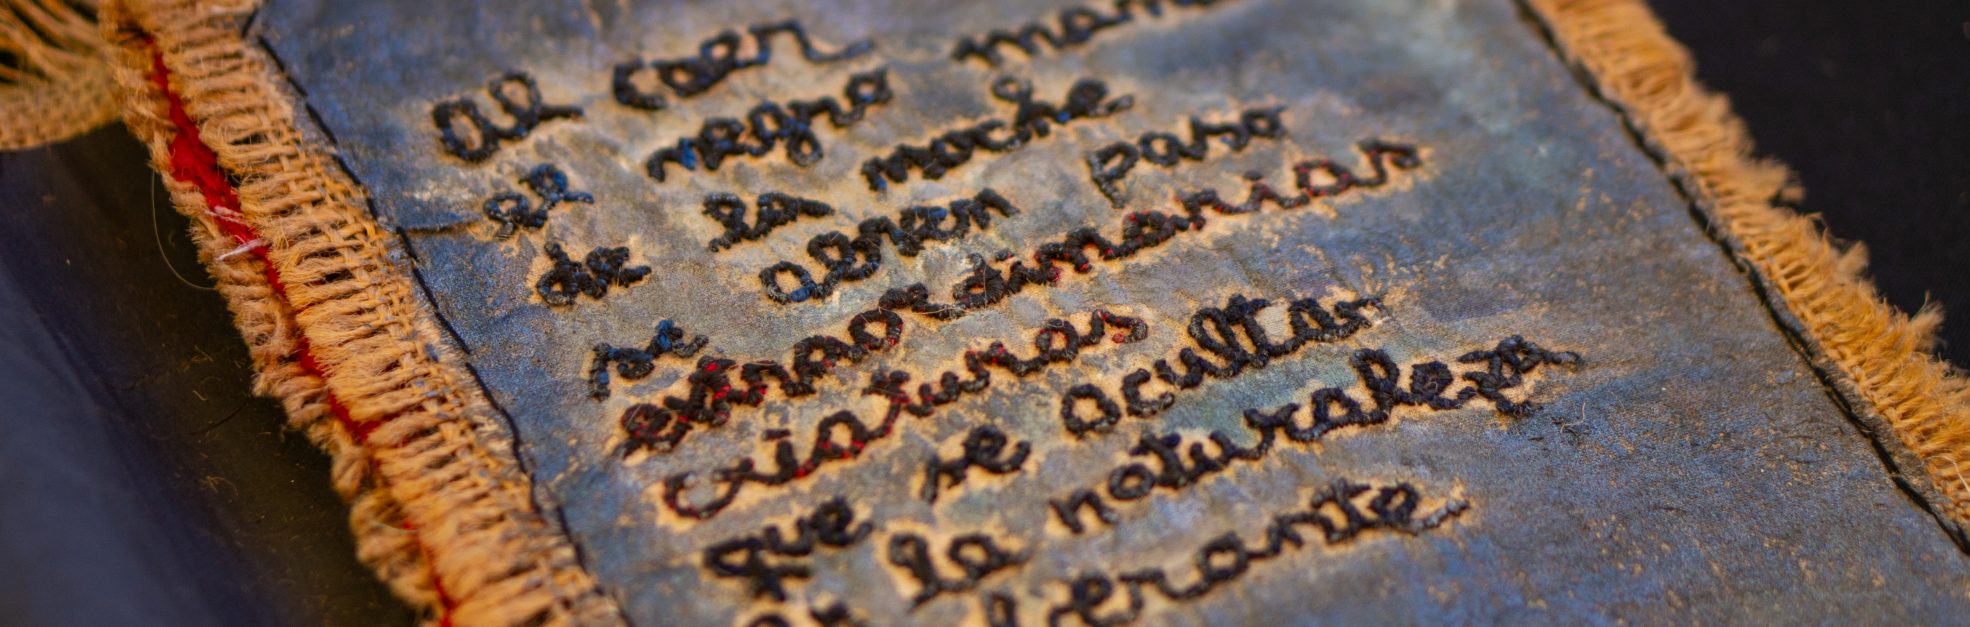 Al caer
el negro
de la noche
se abren paso
extraordinarias
criaturas
que se ocultan
la naturaleza